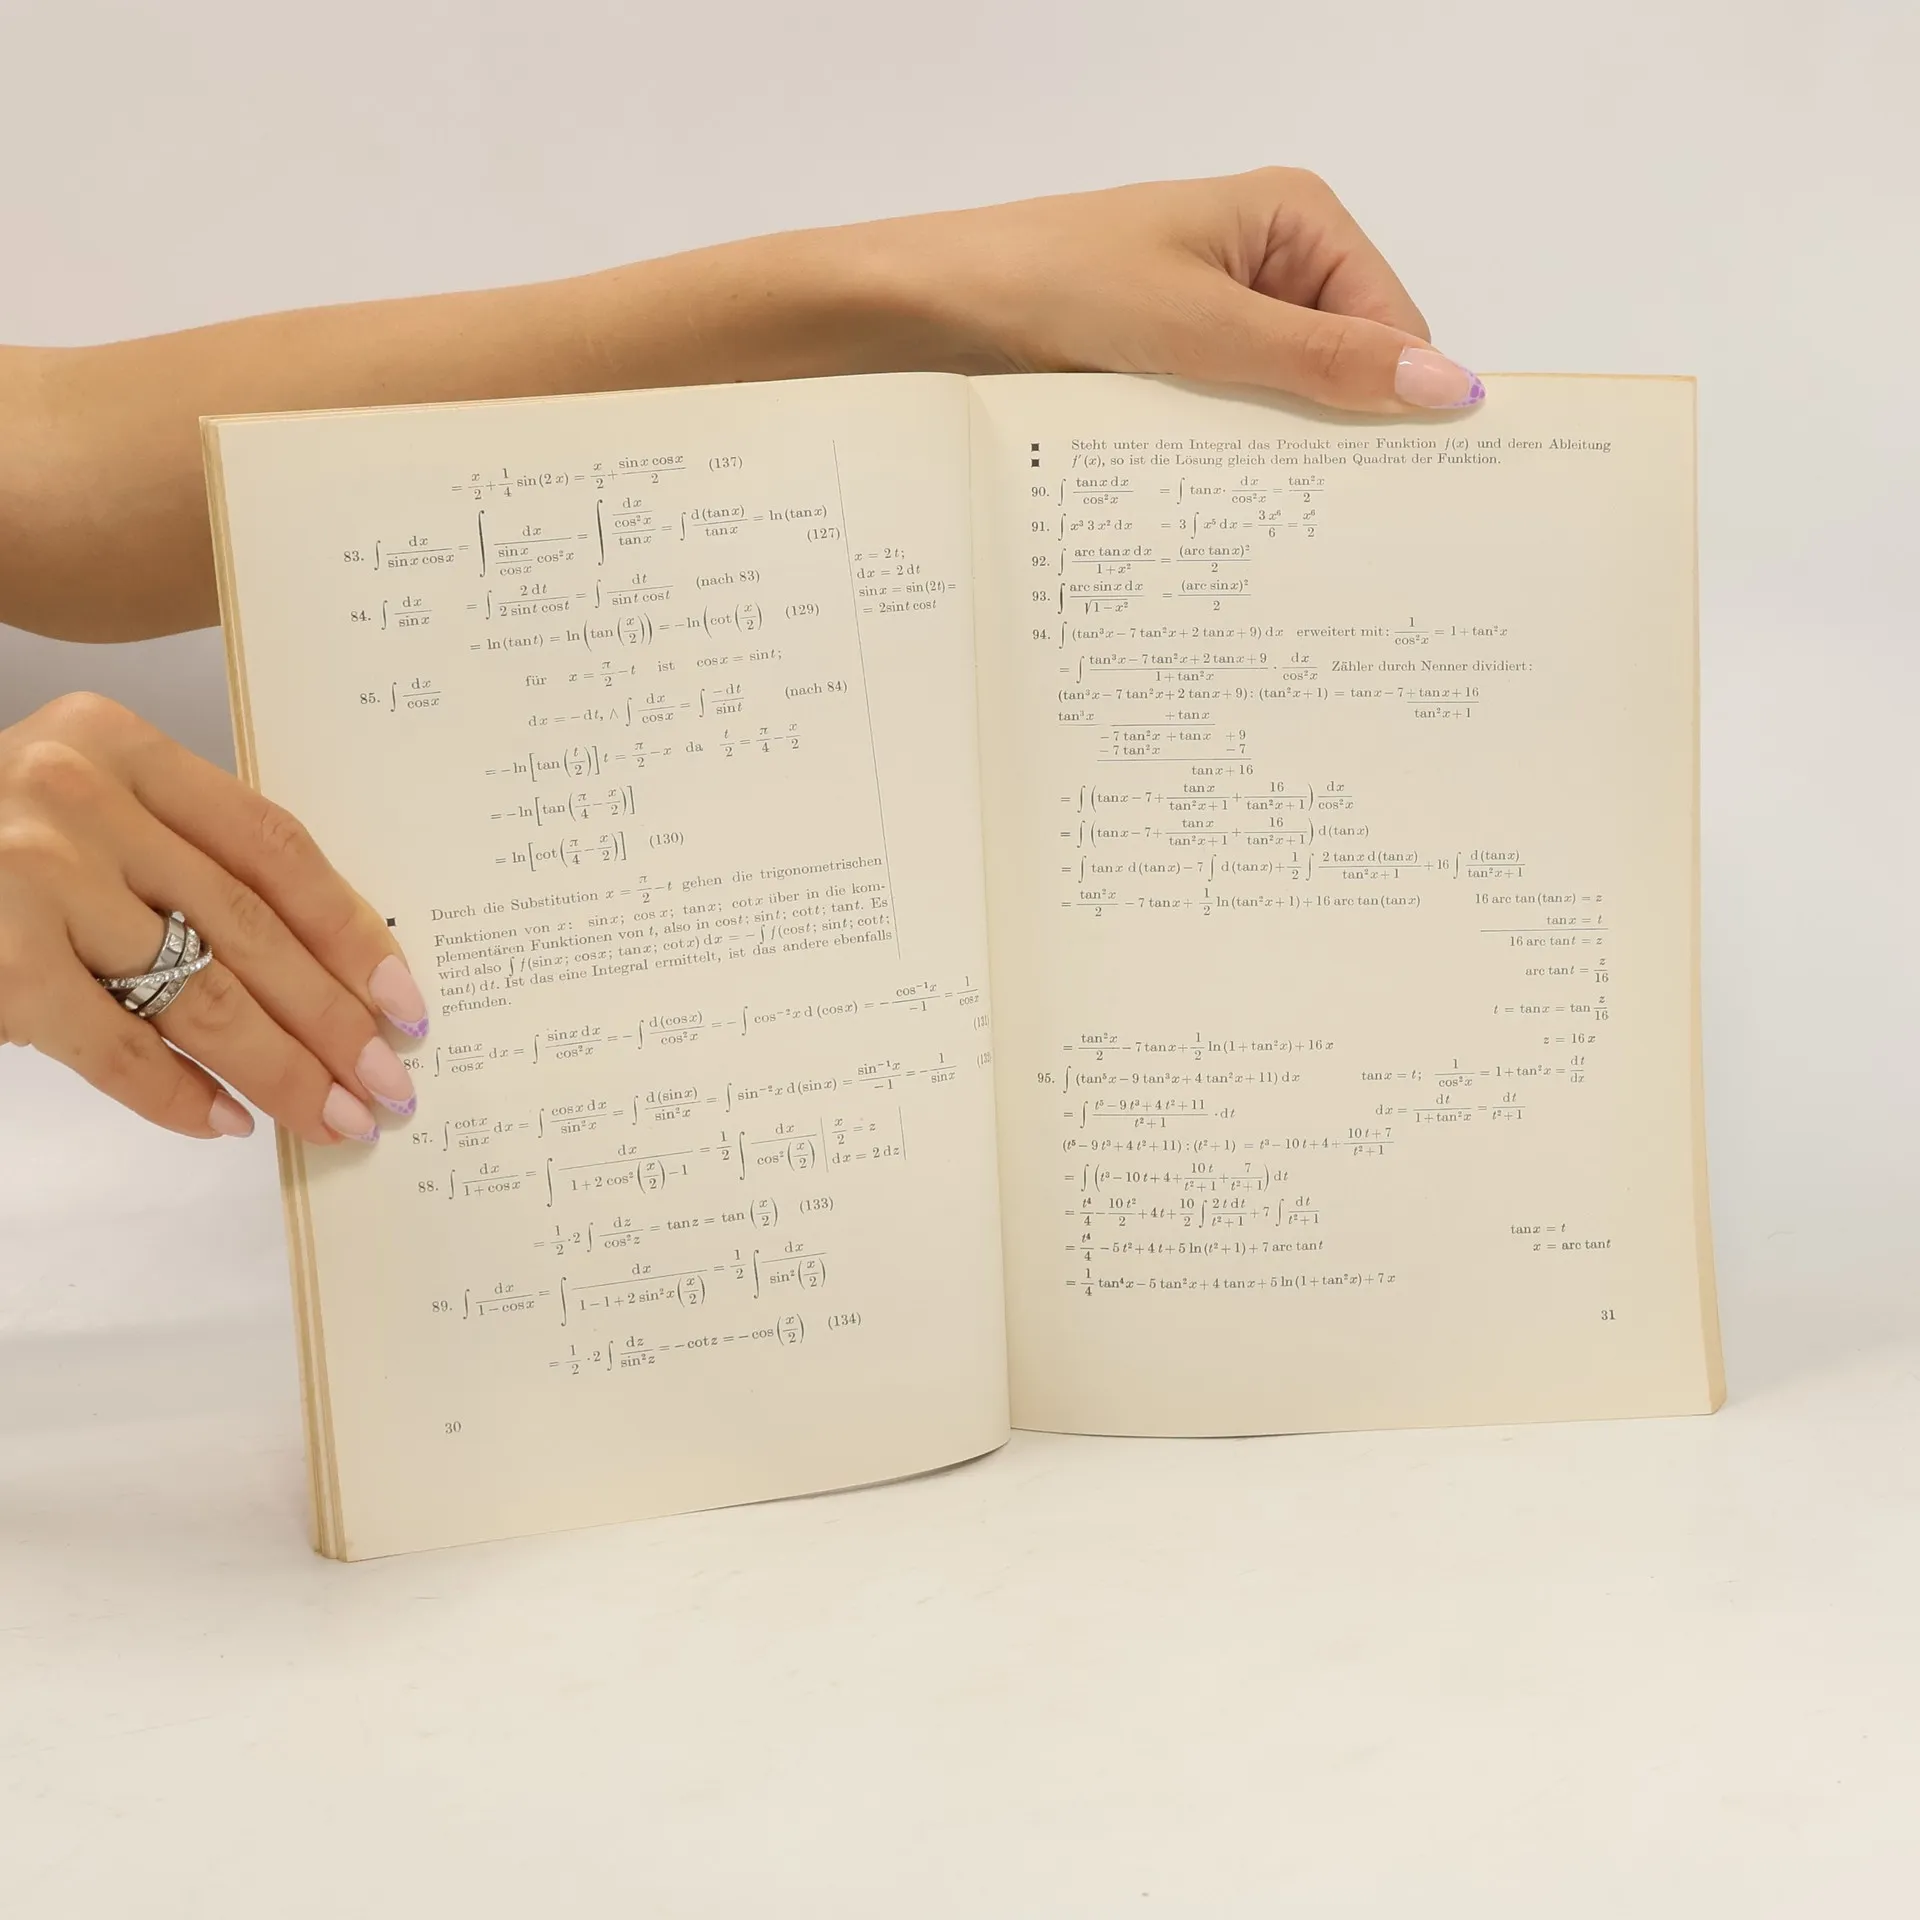 = x/2 + 1/4 sin(2x) = x/2 + sinx cosx/2 (137)
83. ∫ dx/(sinx cosx) = ∫ dx/((sinx/cosx) cos²x) = ∫ (dx/cos²x)/tanx = ∫ d(tanx)/tanx = ln(tanx)
(127)
84. ∫ dx/sinx = ∫ 2dt/(2 sint cost) = ∫ dt/(sint cost) (nach 83)
x = 2t;
dx = 2dt
sinx = sin(2t) =
= 2sint cost
= ln(tant) = ln(tan(x/2)) = −ln(cot(x/2) (129)
85. ∫ dx/cosx für x = π/2 − t ist cosx = sint;
dx = −dt, ∧ ∫ dx/cosx = ∫ −dt/sint (nach 84)
= −ln[tan(t/2)] t = π/2 − x da t/2 = π/4 − x/2
= −ln[tan(π/4 − x/2)]
= ln[cot(π/4 − x/2)] (130)
■ Durch die Substitution x = π/2 − t gehen die trigonometrischen
Funktionen von x: sinx; cosx; tanx; cotx über in die kom-
plementären Funktionen von t, also in cost; sint; cott; tant. Es
wird also ∫ f(sinx; cosx; tanx; cotx) dx = −∫ f(cost; sint; cott;
tant) dt. Ist das eine Integral ermittelt, ist das andere ebenfalls
gefunden.
86. ∫ tanx/cosx dx = ∫ sinx dx/cos²x = −∫ d(cosx)/cos²x = −∫ cos⁻²x d(cosx) = −cos⁻¹x/−1 = 1/cosx
(131)
87. ∫ cotx/sinx dx = ∫ cosx dx/sin²x = ∫ d(sinx)/sin²x = ∫ sin⁻²x d(sinx) = sin⁻¹x/−1 = −1/sinx
88. ∫ dx/(1+cosx) = ∫ dx/(1+2cos²(x/2)−1) = 1/2 ∫ dx/cos²(x/2) | x/2 = z
dx = 2dz |
= 1/2·2 ∫ dz/cos²z = tanz = tan(x/2) (133)
89. ∫ dx/(1−cosx) = ∫ dx/(1−1+2sin²x(x/2)) = 1/2 ∫ dx/sin²(x/2)
= 1/2·2 ∫ dz/sin²z = −cotz = −cos(x/2) (134)
30
■ Steht unter dem Integral das Produkt einer Funktion f(x) und deren Ableitung
■ f′(x), so ist die Lösung gleich dem halben Quadrat der Funktion.
90. ∫ tanx dx/cos²x = ∫ tanx· dx/cos²x = tan²x/2
91. ∫ x³ 3x² dx = 3 ∫ x⁵ dx = 3x⁶/6 = x⁶/2
92. ∫ arc tanx dx/(1+x²) = (arc tanx)²/2
93. ∫ arc sinx dx/√(1−x²) = (arc sinx)²/2
94. ∫ (tan³x − 7tan²x + 2tanx + 9) dx erweitert mit: 1/cos²x = 1 + tan²x
= ∫ (tan³x − 7tan²x + 2tanx + 9)/(1+tan²x) · dx/cos²x Zähler durch Nenner dividiert:
(tan³x − 7tan²x + 2tanx + 9) : (tan²x + 1) = tanx − 7 + (tanx + 16)/(tan²x + 1)
tan³x + tanx
− 7tan²x + tanx + 9
− 7tan²x − 7
tanx + 16
= ∫ (tanx − 7 + tanx/(tan²x+1) + 16/(tan²x+1)) dx/cos²x
= ∫ (tanx − 7 + tanx/(tan²x+1) + 16/(tan²x+1)) d(tanx)
= ∫ tanx d(tanx) − 7 ∫ d(tanx) + 1/2 ∫ 2tanx d(tanx)/(tan²x+1) + 16 ∫ d(tanx)/(tan²x+1)
= tan²x/2 − 7tanx + 1/2 ln(tan²x+1) + 16 arc tan(tanx) 16 arc tan(tanx) = z
tanx = t
16 arc tant = z
arc tant = z/16
t = tanx = tan z/16
= tan²x/2 − 7tanx + 1/2 ln(1+tan²x) + 16x z = 16x
95. ∫ (tan⁵x − 9tan³x + 4tan²x + 11) dx tanx = t; 1/cos²x = 1 + tan²x = dt/dx
= ∫ (t⁵ − 9t³ + 4t² + 11)/(t²+1) · dt dx = dt/(1+tan²x) = dt/(t²+1)
(t⁵ − 9t³ + 4t² + 11) : (t² + 1) = t³ − 10t + 4 + (10t+7)/(t²+1)
= ∫ (t³ − 10t + 4 + 10t/(t²+1) + 7/(t²+1)) dt
= t⁴/4 − 10t²/2 + 4t + 10/2 ∫ 2t dt/(t²+1) + 7 ∫ dt/(t²+1)
tanx = t
= t⁴/4 − 5t² + 4t + 5ln(t²+1) + 7 arc tant x = arc tant
= 1/4 tan⁴x − 5tan²x + 4tanx + 5ln(1+tan²x) + 7x
31